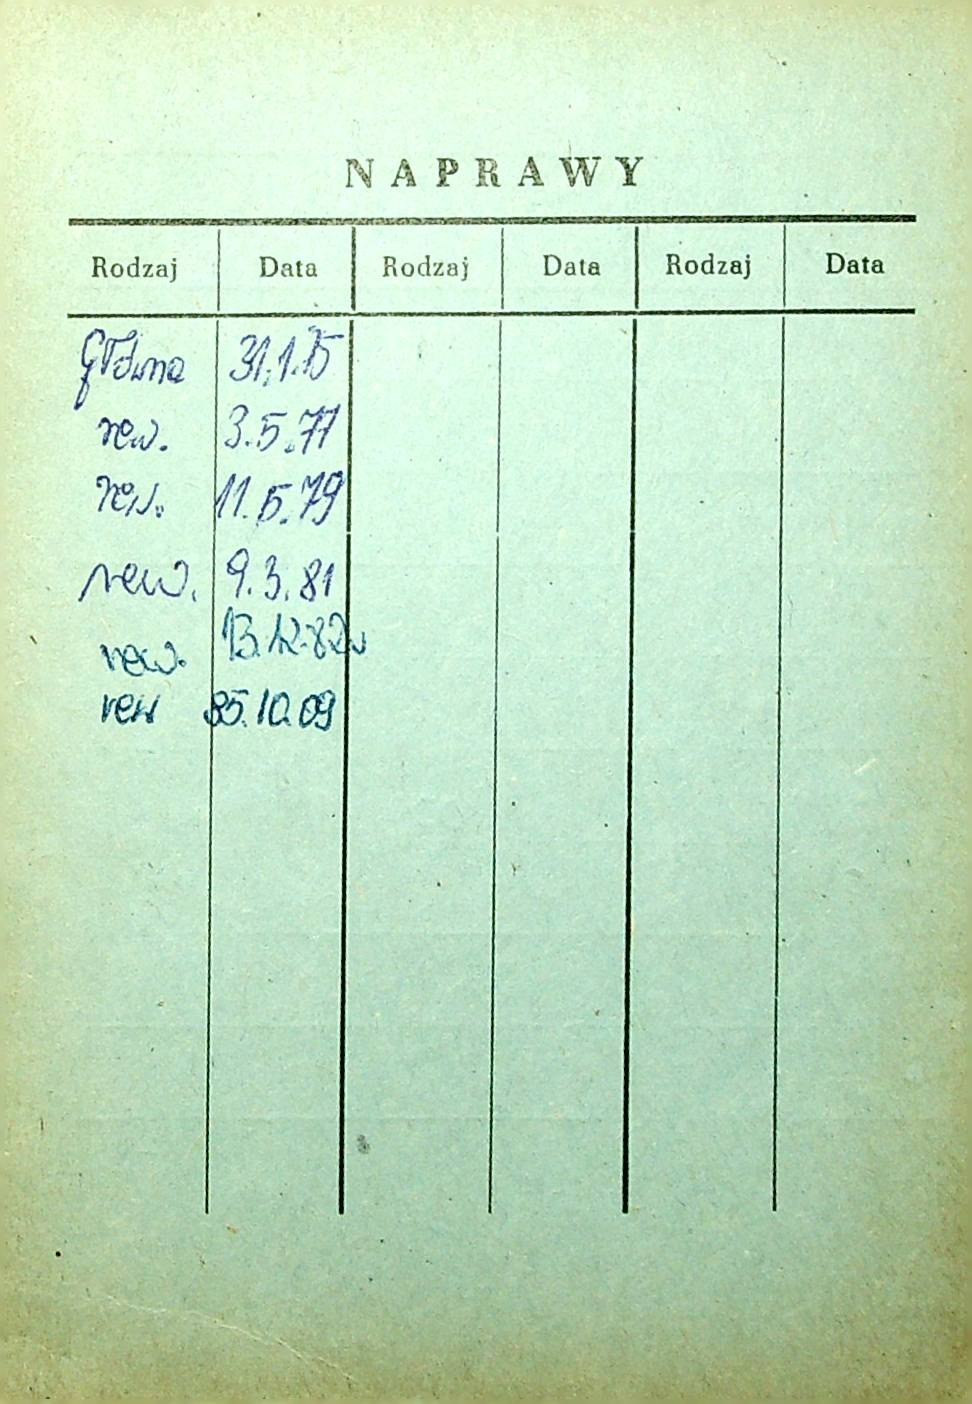 NAPRAWY
Rodzaj Data Rodzaj Data Rodzaj Data
Główna 31.1.75
rew. 3.5.77
rew. 11.5.79
rew. 9.3.81
rew. 13.12.82r
rew 85.10.09